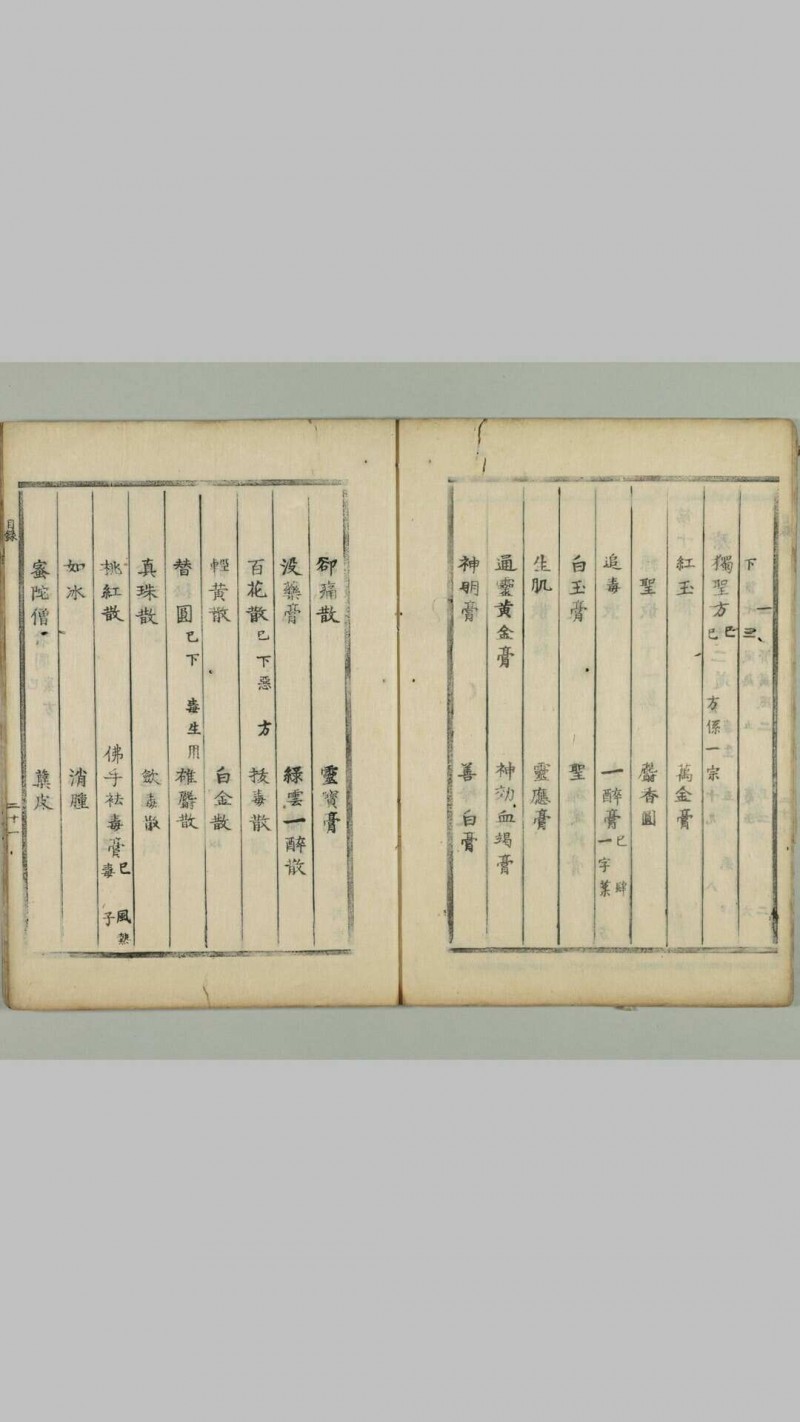 下 一 三
獨聖方 方係一宗
紅玉 萬金膏
聖 麝香圓
追毒 一醉膏 一字
白玉膏 聖
生肌 靈應膏
通靈黃金膏 神効血竭膏
神明膏 善 白膏
卻痛散 靈寶膏
没藥膏 綠雲一醉散
百花散 已下惡 方 拔毒散
輕黃散 白金散
替 圓 已下 毒生用 雄麝散
真珠散 歛毒散
桃紅散 佛手祛毒膏 已 風熱毒 子
如冰 消腫
蜜陀僧
目録
二十一